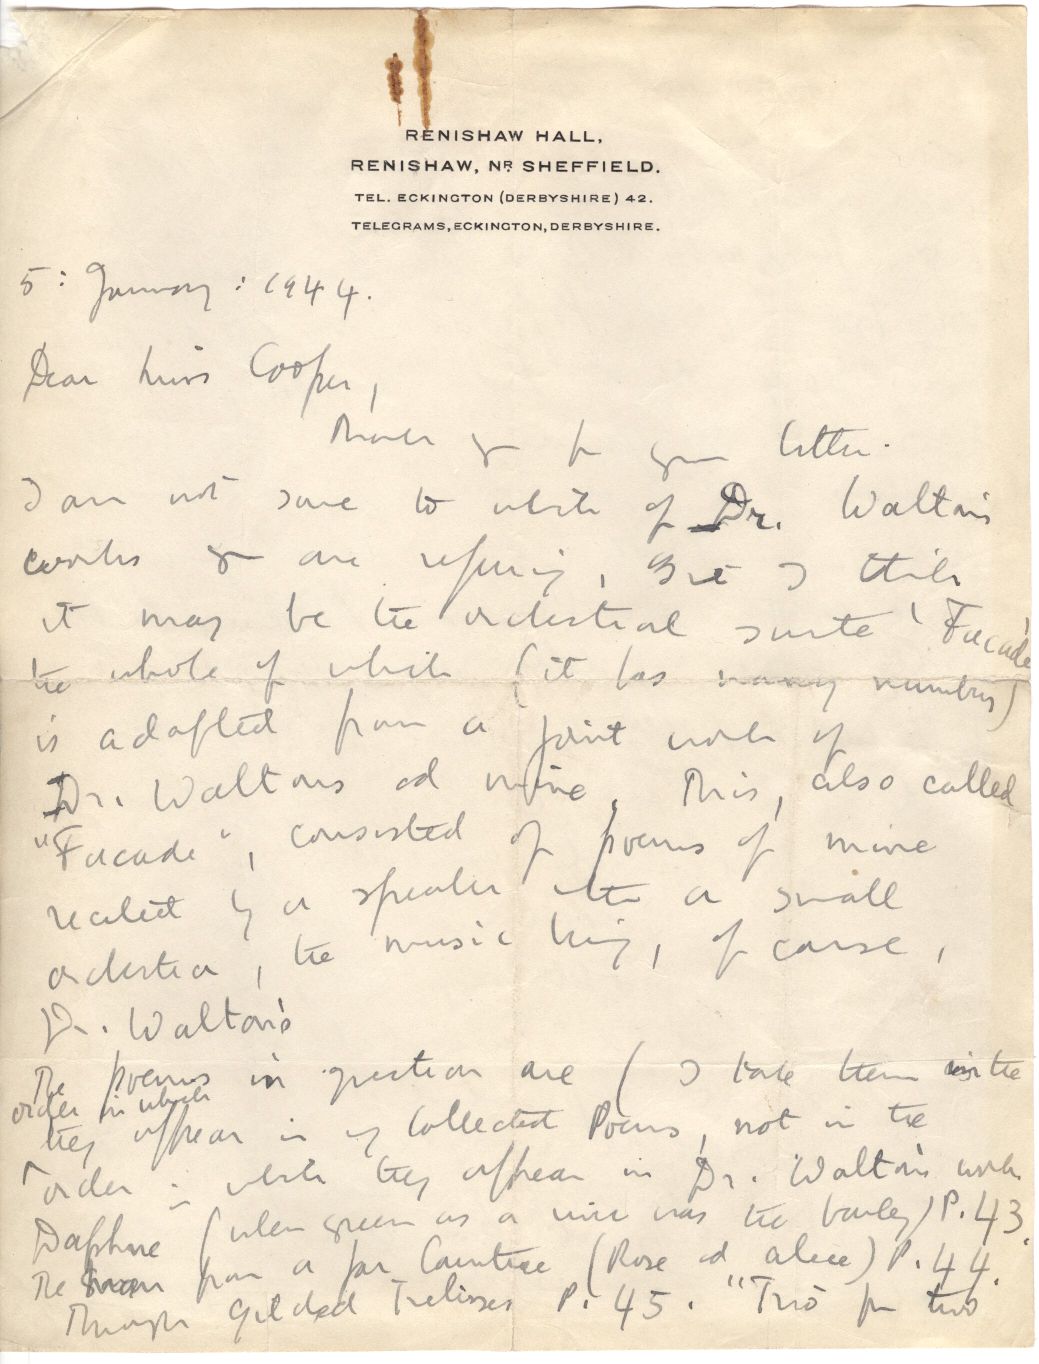 RENISHAW HALL,
RENISHAW, NR SHEFFIELD.
TEL. ECKINGTON (DERBYSHIRE) 42.
TELEGRAMS, ECKINGTON, DERBYSHIRE.
5: January: 1944.
Dear Miss Cooper,
Thank you for your letter.
I am not sure to which of Dr. Walton's
works you are refering, but I think
it may be the orchestral suite 'Facade'
the whole of which (it has many numbers)
is adapted from a joint work of
Dr. Waltons and mine. This, also called
"Facade", consisted of poems of mine
recited by a speaker with a small
orchestra, the music being, of course,
Dr. Walton's
The poems in question are (I take them in the
order in which
they appear in my Collected Poems, not in the
order in which they appear in Dr. Walton's work
Daphne (when green as a river was the barley) P. 43.
The from a far Countree (Rose and alice) P. 44.
Through Gilded Trelisses P. 45. "Trio for two